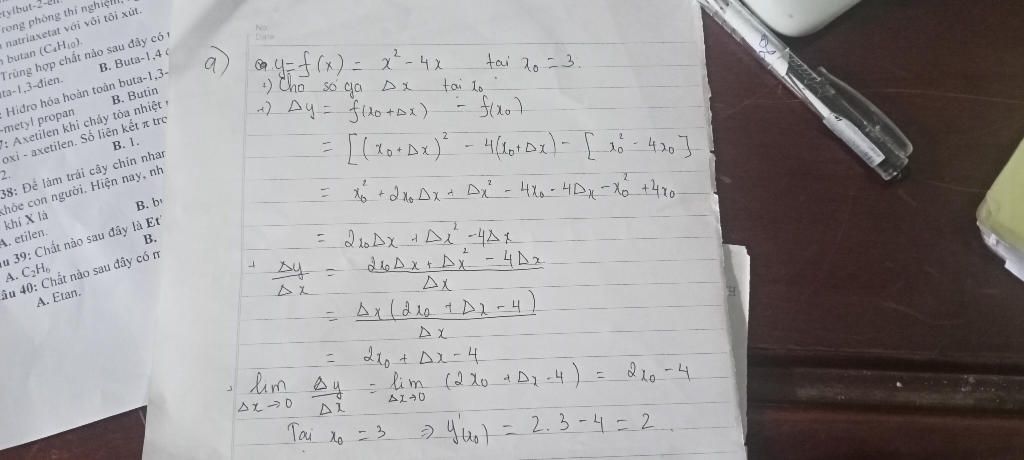 etylbut-2-en.
rong phòng thí nghiệm,
natriaxetat với vôi tôi xút.
butan (C4H10).
Trùng hợp chất nào sau đây có
ta-1,3-đien. B. Buta-1,4
Hiđro hóa hoàn toàn buta-1,3-
-metyl propan B. Butin
7: Axetilen khi cháy tỏa nhiệt
oxi - axetilen. Số liên kết π tro
2. B. 1.
38: Để làm trái cây chín nhan
khỏe con người. Hiện nay, nh
khí X là
A. etilen. B. b
u 39: Chất nào sau đây là Et
A. C2H6 B.
âu 40: Chất nào sau đây có m
A. Etan.
No.
Date
a) y = f(x) = x² - 4x tại x₀ = 3.
+) Cho số gia Δx tại x₀
+) Δy = f(x₀ + Δx) - f(x₀)
= [(x₀ + Δx)² - 4(x₀ + Δx) - [x₀² - 4x₀]
= x₀² + 2x₀Δx + Δx² - 4x₀ - 4Δx - x₀² + 4x₀
= 2x₀Δx + Δx² - 4Δx
+ Δy/Δx = (2x₀Δx + Δx² - 4Δx)/Δx
= Δx(2x₀ + Δx - 4)/Δx
= 2x₀ + Δx - 4
lim Δx→0 Δy/Δx = lim Δx→0 (2x₀ + Δx - 4) = 2x₀ - 4
Tại x₀ = 3 ⇒ y'(x₀) = 2.3 - 4 = 2.